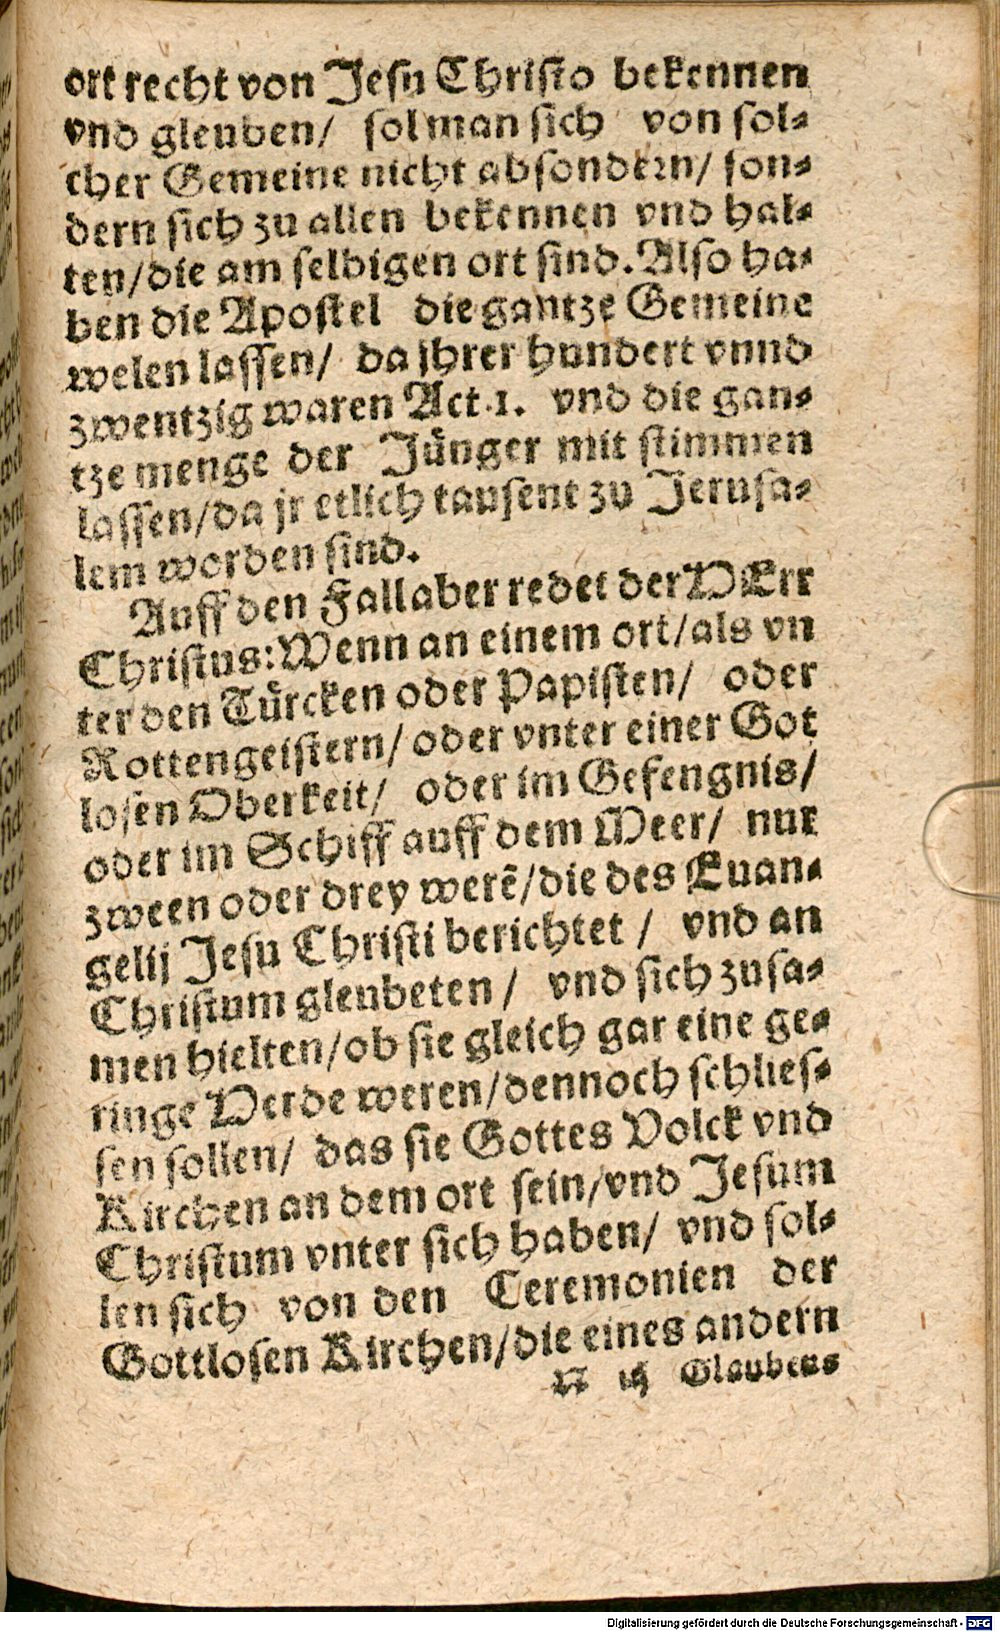 ort recht von Jesu Christo bekennen
vnd gleuben/ sol man sich von sol⸗
cher Gemeine nicht absondern/ son⸗
dern sich zu allen bekennen vnd hal⸗
ten/die am selbigen ort sind. Also ha⸗
ben die Apostel die gantze Gemeine
welen lassen/ da jhrer hundert vnnd
zwentzig waren Act.1. vnd die gan⸗
tze menge der Jünger mit stimmen
lassen/da jr etlich tausent zu Jerusa⸗
lem worden sind.
Auff den Fall aber redet der HErr
Christus: Wenn an einem ort/als vn
ter den Türcken oder Papisten/ oder
Rottengeistern/ oder vnter einer Got
losen Oberkeit/ oder im Gefengnis/
oder im Schiff auff dem Meer/ nur
zween oder drey werẽ/die des Euan⸗
gelij Jesu Christi berichtet / vnd an
Christum gleubeten / vnd sich zusa⸗
men hielten/ob sie gleich gar eine ge⸗
ringe Herde weren/dennoch schlies⸗
sen sollen/ das sie Gottes Volck vnd
Kirchen an dem ort sein/vnd Jesum
Christum vnter sich haben/ vnd sol⸗
len sich von den Ceremonien der
Gottlosen Kirchen/die eines andern
N iij Glaubens
Digitalisierung gefördert durch die Deutsche Forschungsgemeinschaft - DFG